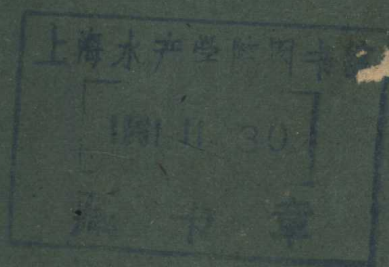 上海水产学院图书馆
1961 11 30
书章